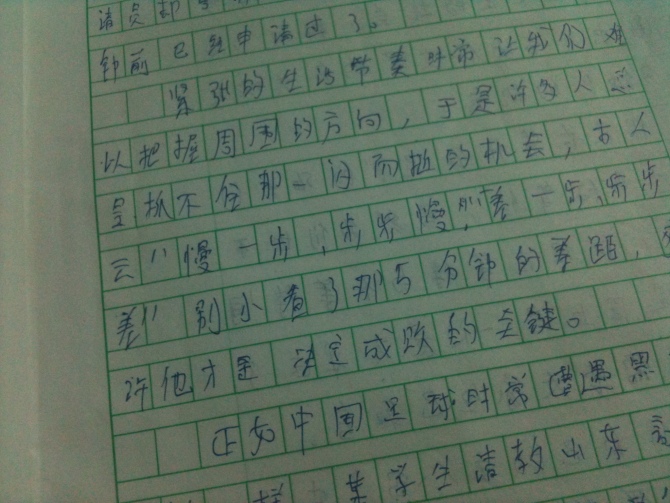 请员却
钟前已经申请过了。
紧张的生活节奏时常让我们难
以把握周围的方向，于是许多人总
是抓不住那一闪而逝的机会，古人
云“慢一步，步步慢”“差一步，步步
差”别小看了那5分钟的差距，
许他才是决定成败的关键。
正如中国足球时常遭遇黑
某学生请教山东